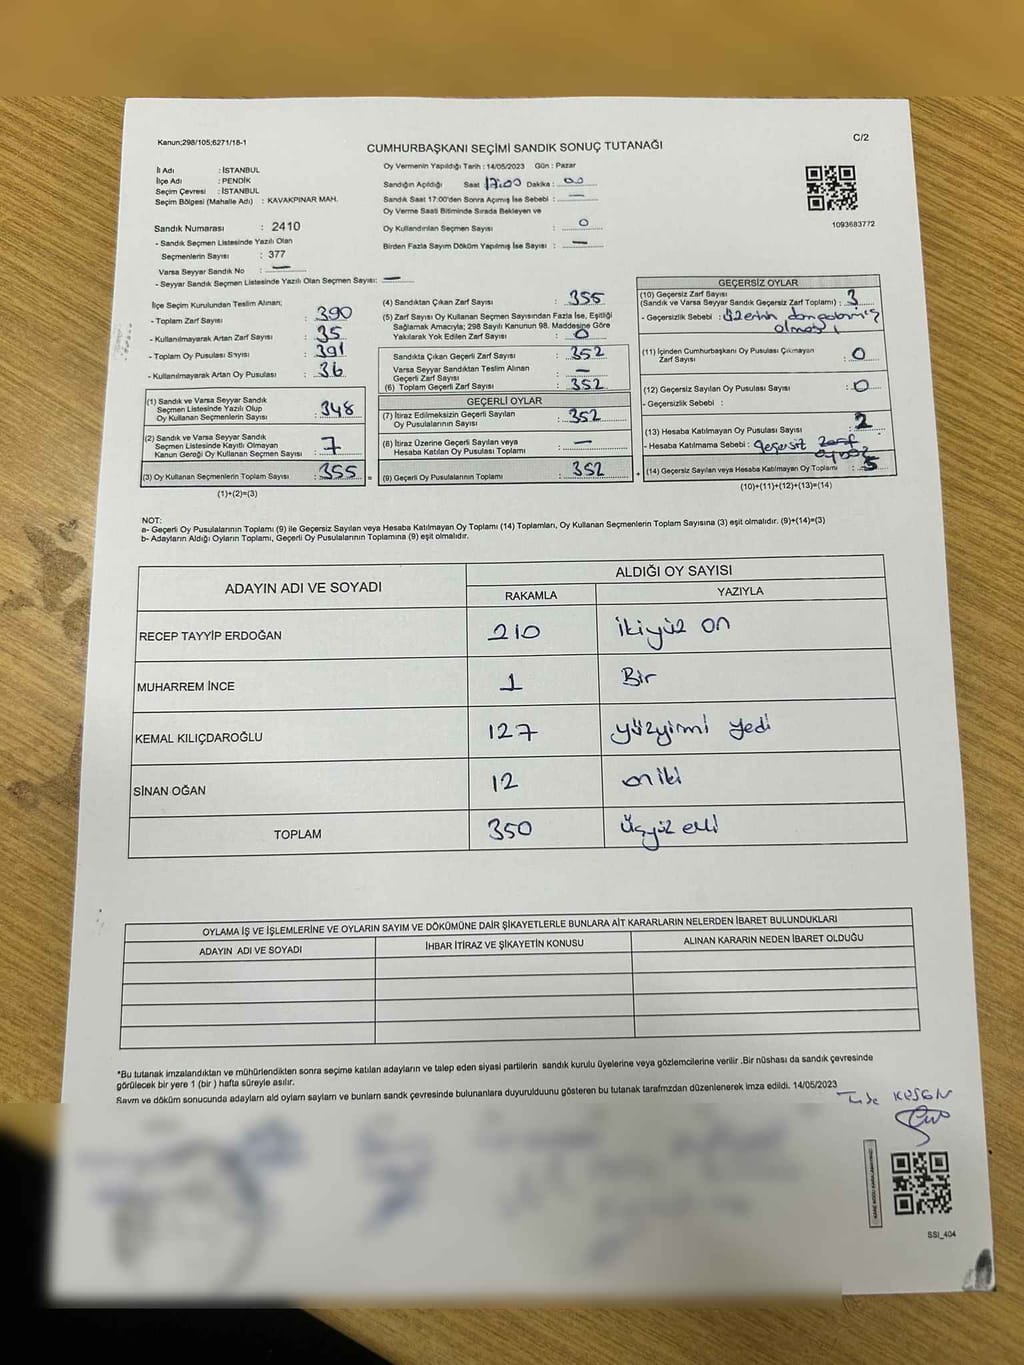 Kanun;298/105;6271/18-1
C/2
CUMHURBAŞKANI SEÇİMİ SANDIK SONUÇ TUTANAĞI
İl Adı : İSTANBUL
İlçe Adı : PENDİK
Seçim Çevresi : İSTANBUL
Seçim Bölgesi (Mahalle Adı) : KAVAKPINAR MAH.
Sandık Numarası : 2410
- Sandık Seçmen Listesinde Yazılı Olan
Seçmenlerin Sayısı : 377
Varsa Seyyar Sandık No : —
- Seyyar Sandık Seçmen Listesinde Yazılı Olan Seçmen Sayısı: —
Oy Vermenin Yapıldığı Tarih : 14/05/2023 Gün : Pazar
Sandığın Açıldığı Saat 17:00 Dakika : 00
Sandık Saat 17:00'den Sonra Açımış İse Sebebi : —
Oy Verme Saati Bitiminde Sırada Bekleyen ve
Oy Kullandırılan Seçmen Sayısı : 0
Birden Fazla Sayım Döküm Yapılmış İse Sayısı : —
1093683772
İlçe Seçim Kurulundan Teslim Alınan;
- Toplam Zarf Sayısı : 390
- Kullanılmayarak Artan Zarf Sayısı : 35
- Toplam Oy Pusulası Sayısı : 391
- Kullanılmayarak Artan Oy Pusulası : 36
(1) Sandık ve Varsa Seyyar Sandık
Seçmen Listesinde Yazılı Olup
Oy Kullanan Seçmenlerin Sayısı : 348
(2) Sandık ve Varsa Seyyar Sandık
Seçmen Listesinde Kayıtlı Olmayan
Kanun Gereği Oy Kullanan Seçmen Sayısı : 7
(3) Oy Kullanan Seçmenlerin Toplam Sayısı : 355
(1)+(2)=(3)
=
(4) Sandıktan Çıkan Zarf Sayısı : 355
(5) Zarf Sayısı Oy Kullanan Seçmen Sayısından Fazla İse, Eşitliği
Sağlamak Amacıyla; 298 Sayılı Kanunun 98. Maddesine Göre
Yakılarak Yok Edilen Zarf Sayısı : 0
Sandıkta Çıkan Geçerli Zarf Sayısı : 352
Varsa Seyyar Sandıktan Teslim Alınan
Geçerli Zarf Sayısı : —
(6) Toplam Geçerli Zarf Sayısı : 352
GEÇERLİ OYLAR
(7) İtiraz Edilmeksizin Geçerli Sayılan
Oy Pusulalarının Sayısı : 352
(8) İtiraz Üzerine Geçerli Sayılan veya
Hesaba Katılan Oy Pusulası Toplamı : —
(9) Geçerli Oy Pusulalarının Toplamı : 352
+
GEÇERSİZ OYLAR
(10) Geçersiz Zarf Sayısı
(Sandık ve Varsa Seyyar Sandık Geçersiz Zarf Toplamı) : 3
- Geçersizlik Sebebi :
olması
(11) İçinden Cumhurbaşkanı Oy Pusulası Çıkmayan
Zarf Sayısı : 0
(12) Geçersiz Sayılan Oy Pusulası Sayısı : 0
- Geçersizlik Sebebi :
(13) Hesaba Katılmayan Oy Pusulası Sayısı : 2
- Hesaba Katılmama Sebebi : Geçersiz zarf
(14) Geçersiz Sayılan veya Hesaba Katılmayan Oy Toplamı : 5
(10)+(11)+(12)+(13)=(14)
NOT:
a- Geçerli Oy Pusulalarının Toplamı (9) ile Geçersiz Sayılan veya Hesaba Katılmayan Oy Toplamı (14) Toplamları, Oy Kullanan Seçmenlerin Toplam Sayısına (3) eşit olmalıdır. (9)+(14)=(3)
b- Adayların Aldığı Oyların Toplamı, Geçerli Oy Pusulalarının Toplamına (9) eşit olmalıdır.
ADAYIN ADI VE SOYADI
ALDIĞI OY SAYISI
RAKAMLA YAZIYLA
RECEP TAYYİP ERDOĞAN 210 ikiyüz on
MUHARREM İNCE 1 Bir
KEMAL KILIÇDAROĞLU 127 yüzyirmi yedi
SİNAN OĞAN 12 on iki
TOPLAM 350 Üçyüz elli
OYLAMA İŞ VE İŞLEMLERİNE VE OYLARIN SAYIM VE DÖKÜMÜNE DAİR ŞİKAYETLERLE BUNLARA AİT KARARLARIN NELERDEN İBARET BULUNDUKLARI
ADAYIN ADI VE SOYADI İHBAR İTİRAZ VE ŞİKAYETİN KONUSU ALINAN KARARIN NEDEN İBARET OLDUĞU
*Bu tutanak imzalandıktan ve mühürlendikten sonra seçime katılan adayların ve talep eden siyasi partilerin sandık kurulu üyelerine veya gözlemcilerine verilir .Bir nüshası da sandık çevresinde
görülecek bir yere 1 (bir ) hafta süreyle asılır.
Sayım ve döküm sonucunda adayların ald oyların sayların ve bunların sandk çevresinde bulunanlara duyurulduunu gösteren bu tutanak tarafmzdan düzenlenerek imza edildi. 14/05/2023
KESGİN
SSI_404